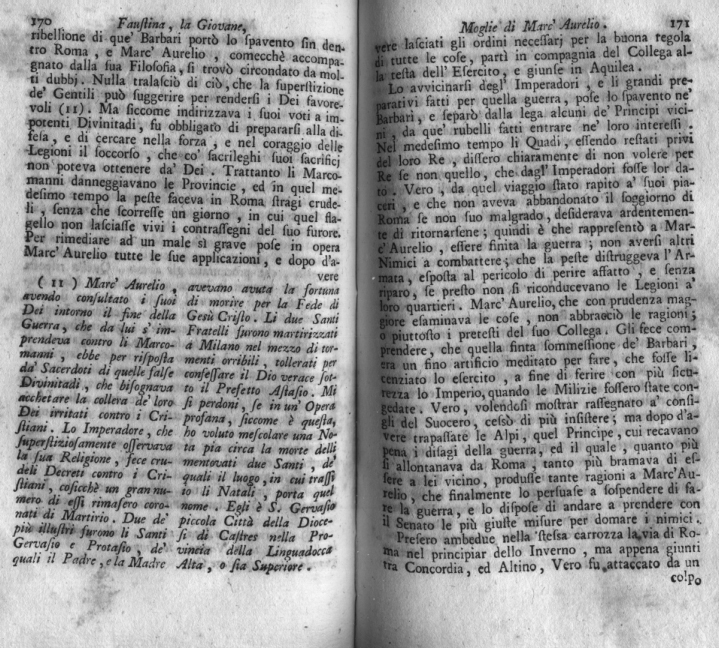 170 Fauſtina, la Giovane,
ribellione di que' Barbari portò lo ſpavento ſin den-
tro Roma, e Marc' Aurelio, comecchè accompa-
gnato dalla ſua Filoſofia, ſi trovò circondato da mol-
ti dubbj. Nulla tralaſciò di ciò, che la ſuperſtizione
de' Gentili può ſuggerire per renderſi i Dei favore-
voli (11). Ma ſiccome indirizzava i ſuoi voti a im-
potenti Divinitadi, fu obbligato di prepararſi alla di-
feſa, e di cercare nella forza, e nel coraggio delle
Legioni il ſoccorſo, che co' ſacrileghi ſuoi ſacrificj
non poteva ottenere da' Dei. Trattanto li Marco-
manni danneggiavano le Provincie, ed in quel me-
deſimo tempo la peſte faceva in Roma ſtragi crude-
li, ſenza che ſcorreſſe un giorno, in cui quel fla-
gello non laſciaſſe vivi i contraſſegni del ſuo furore.
Per rimediare ad un male sì grave poſe in opera
Marc' Aurelio tutte le ſue applicazioni, e dopo d'a-
vere
(11) Marc' Aurelio,
avendo conſultato i ſuoi
Dei intorno il fine della
Guerra, che da lui s' im-
prendeva contro li Marco-
manni, ebbe per riſpoſta
da' Sacerdoti di quelle falſe
Divinitadi, che biſognava
acchetare la collera de' loro
Dei irritati contro i Cri-
ſtiani. Lo Imperadore, che
ſuperſtizioſamente oſſervava
la ſua Religione, fece cru-
deli Decreti contro i Cri-
ſtiani, coſicchè un gran nu-
mero di eſſi rimaſero coro-
nati di Martirio. Due de'
più illuſtri furono li Santi
Gervaſio e Protaſio, de'
quali il Padre, e la Madre
avevano avuta la fortuna
di morire per la Fede di
Gesù Criſto. Li due Santi
Fratelli furono martirizzati
a Milano nel mezzo di tor-
menti orribili, tollerati per
confeſſare il Dio verace ſot-
to il Prefetto Aſtaſio. Mi
ſi perdoni, ſe in un' Opera
profana, ſiccome è queſta,
ho voluto meſcolare una No-
ta pia circa la morte delli
mentovati due Santi, de'
quali il luogo, in cui traſſi
to li Natali, porta quel
nome. Egli è S. Gervaſio
piccola Città della Dioce-
ſi di Caſtres nella Pro-
vincia della Linguadocca
Alta, o ſia Superiore.
Moglie di Marc' Aurelio. 171
vere laſciati gli ordini neceſſarj per la buona regola
di tutte le coſe, partì in compagnia del Collega al-
la teſta dell' Eſercito, e giunſe in Aquilea.
Lo avvicinarſi degl' Imperadori, e li grandi pre-
parativi fatti per quella guerra, poſe lo ſpavento ne'
Barbari, e ſeparò dalla lega alcuni de' Principi vici-
ni, da que' rubelli fatti entrare ne' loro intereſſi.
Nel medeſimo tempo li Quadi, eſſendo reſtati privi
del loro Re, diſſero chiaramente di non volere per
Re ſe non quello, che dagl' Imperadori foſſe lor da-
to. Vero, da quel viaggio ſtato rapito a' ſuoi pia-
ceri, e che non aveva abbandonato il ſoggiorno di
Roma ſe non ſuo malgrado, deſiderava ardentemen-
te di ritornarſene; quindi è che rappreſentò a Mar-
c' Aurelio, eſſere finita la guerra; non averſi altri
Nimici a combattere; che la peſte diſtruggeva l' Ar-
mata, eſpoſta al pericolo di perire affatto, e ſenza
riparo, ſe preſto non ſi riconducevano le Legioni a'
loro quartieri. Marc' Aurelio, che con prudenza mag-
giore eſaminava le coſe, non abbracciò le ragioni;
o piuttoſto i preteſti del ſuo Collega. Gli fece com-
prendere, che quella finta ſommeſſione de' Barbari,
era un fino artificio meditato per fare, che foſſe li-
cenziato lo eſercito, a fine di ferire con più ſicu-
rezza lo Imperio, quando le Milizie foſſero ſtate con-
gedate. Vero, volendoſi moſtrar raſſegnato a' conſi-
gli del Suocero, ceſsò di più inſiſtere; ma dopo d'a-
vere trapaſſate le Alpi, quel Principe, cui recavano
pena i diſagi della guerra, ed il quale, quanto più
ſi allontanava da Roma, tanto più bramava di eſ-
ſere a lei vicino, produſſe tante ragioni a Marc' Au-
relio, che finalmente lo perſuaſe a ſoſpendere di fa-
re la guerra, e lo diſpoſe di andare a prendere con
il Senato le più giuſte miſure per domare i nimici.
Preſero ambedue nella ſteſſa carrozza la via di Ro-
ma nel principiar dello Inverno, ma appena giunti
tra Concordia, ed Altino, Vero fu attaccato da un
colpo